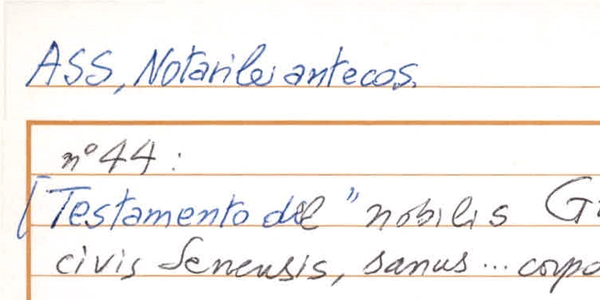 ASS, Notarile antecos.
n° 44:
[Testamento del "nobilis
civis Senensis, sanus... corpo